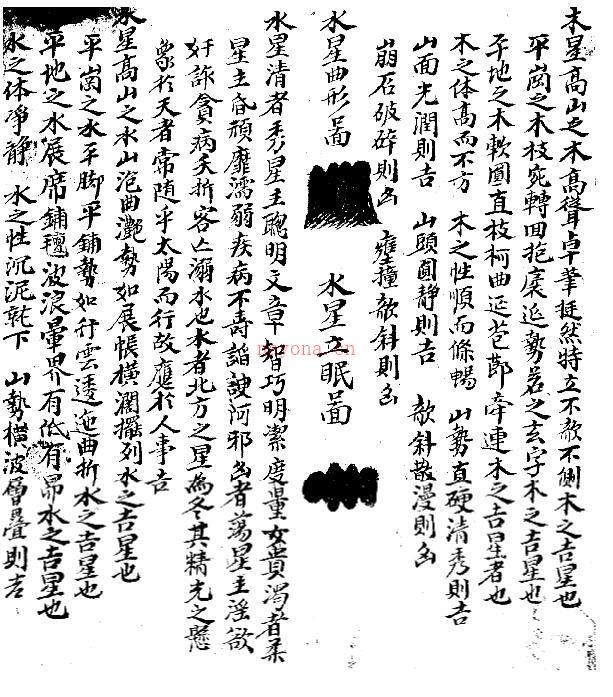 木星高山之木高聳卓筆挺然特立不欹不側木之吉星也
平崗之木枝宛轉回抱麋迤勢若之玄字木之吉星也
平地之木軟圓直枝柯曲延苞節牽連木之吉星者也
木之体高而不方 木之性順而條暢 山勢直硬清秀則吉
山面光潤則吉 山頭圓静則吉 欹斜散漫則凶
崩石破碎則凶 壅撞欹斜則凶
水星曲形圖 水星立眠圖
水星清者秀星主聰明文章智巧明潔度量女貴濁者柔
星主昏頑靡濡弱疾病不壽謟諛阿邪凶者蕩星主淫欲
奸詐貪病夭折客亡溺水也水者北方之星為冬其精光之懸
象於天者常随乎太陽而行故應於人事吉
水星高山之水山泡曲灧勢如展帳橫瀾擺列水之吉星也
平崗之水平脚平鋪勢如行雲逶迤曲折水之吉星也
平地之水展席鋪氊波浪暈界有低有昂水之吉星也
水之体凈静 水之性沉泥就下 山勢橫波層疊則吉
nayona.cn